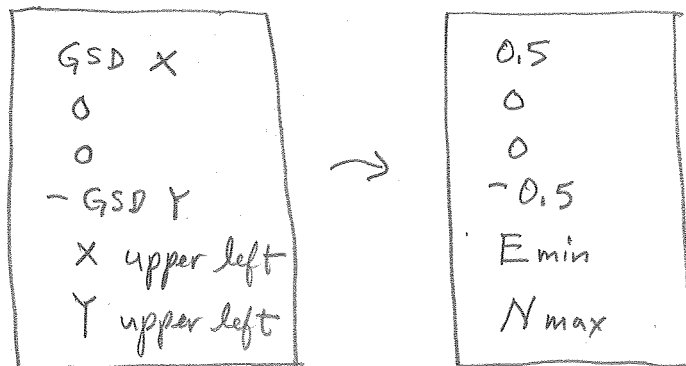 GSD X
0
0
- GSD Y
X upper left
Y upper left
→
0.5
0
0
-0.5
E min
N max